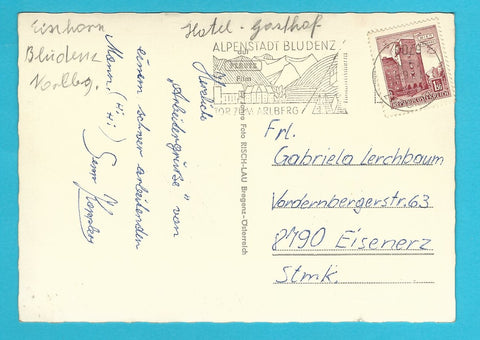 Hotel-Gasthof
Einhorn
Bludenz
Vorlbg.
Herzliche
"Arbeitergrüße" von
einem schwer arbeitenden
Mann, (Hi Hi)
ALPENSTADT BLUDENZ
Film
TOR ZUM ARLBERG
REPUBLIK ÖSTERREICH
Foto RISCH-LAU Bregenz-Österreich
Frl.
Gabriela Lerchbaum
Vordernbergerstr.63
8790 Eisenerz
Stmk.